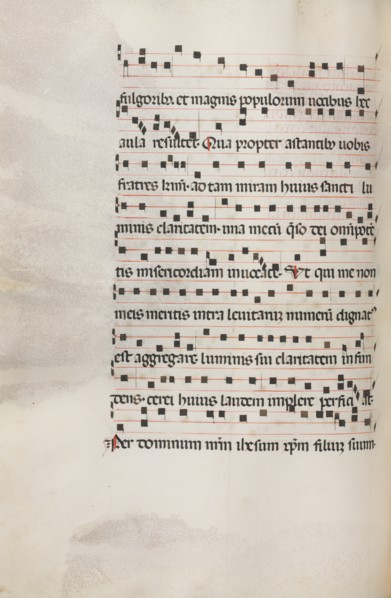 fulgoribꝫ. et magnis populorum uocibus hec
aula resultet. Qua propter astantibꝫ uobis
fratres krmi. ad tam miram huius sancti lu
minis claritatem. una mecū q̄so dei omīpotē
tis misericordiam inuocate. Vt qui me non
meis meritis intra leuitarū numerū dignatꝰ
est aggregare luminis sui claritatem infun
dens. cerei huius laudem implere perficiat.
Per dominum nr̄m ihesum xp̄m filiuȝ suum.